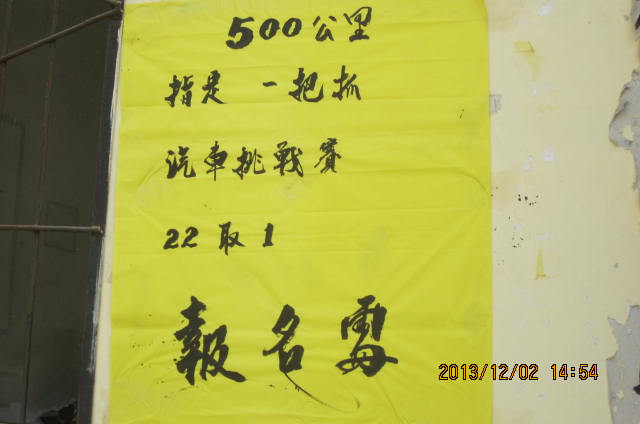 500公里
指是 一把抓
汽車挑戰賽
22取1
報名
2013/12/02 14:54